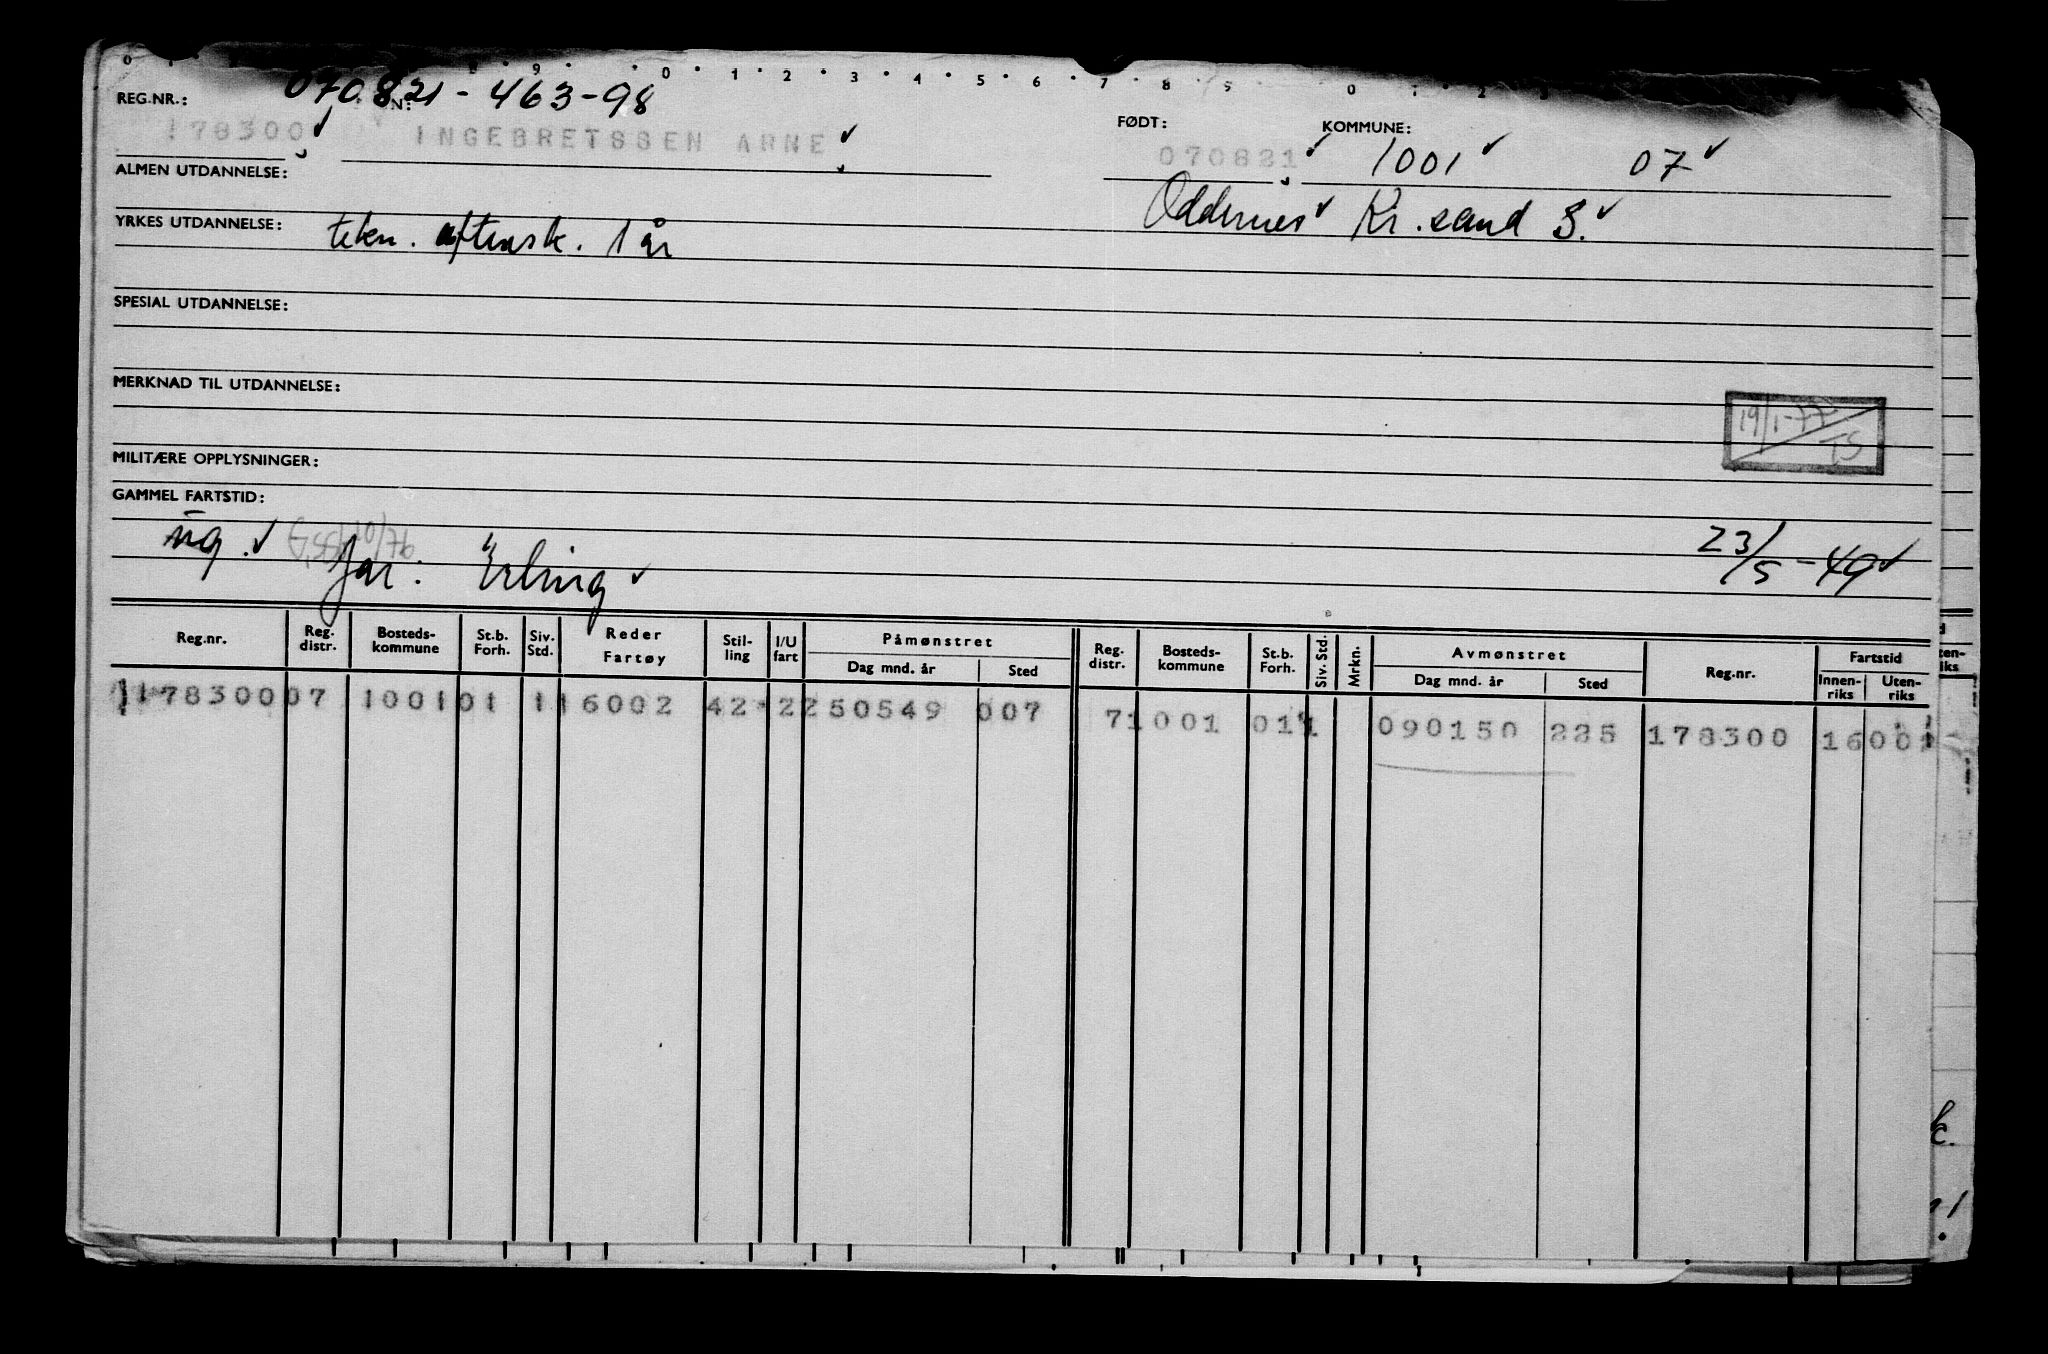 070821-463-98
REG.NR.: N: FØDT: KOMMUNE:
178300 INGEBRETSSEN ARNE 070821 1001 07
ALMEN UTDANNELSE:
Oddernes Kr.sand S.
YRKES UTDANNELSE: tekn. aftensk. 1 år
SPESIAL UTDANNELSE:
MERKNAD TIL UTDANNELSE:
19/1-77
TS
MILITÆRE OPPLYSNINGER:
GAMMEL FARTSTID:
ug. 23/5-49
far: Erling
Reg.nr. Reg. distr. Bosteds-kommune St.b. Forh. Siv. Std. Reder Fartøy Stil-ling I/U fart Påmønstret Dag mnd. år Sted Reg. distr. Bosteds-kommune St.b. Forh. Siv. Std. Mrkn. Avmønstret Dag mnd. år Sted Reg.nr. Fartstid Innen-riks Uten-riks
17830007 100101 116002 42 22 50549 007
71001 011 090150 225 178300 16002